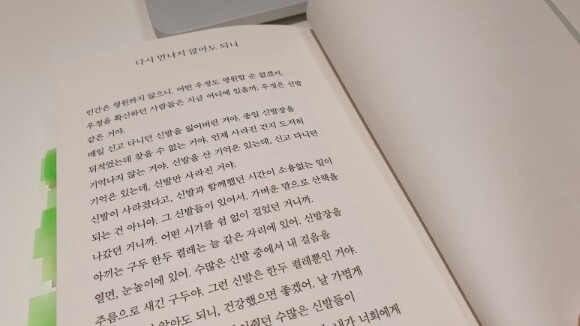 다시 만나지 않아도 되니
인간은 영원하지 않으니, 어떤 우정도 영원할 순 없겠지.
우정을 확신하던 사람들은 지금 어디에 있을까. 우정은 신발
같은 거야.
매일 신고 다니던 신발을 잃어버린 거야. 종일 신발장을
뒤적였는데 찾을 수 없는 거야. 언제 사라진 건지 도저히
기억나지 않는 거야. 신발을 산 기억은 있는데, 신고 다니던
기억은 있는데, 신발만 사라진 거야.
신발이 사라졌다고, 신발과 함께했던 시간이 소용없는 일이
되는 건 아니야. 그 신발들이 있어서, 가벼운 맘으로 산책을
나갔던 거니까. 어떤 시기를 쉼 없이 걸었던 거니까.
아끼는 구두 한두 켤레는 늘 같은 자리에 있어. 신발장을
열면, 눈높이에 있어. 수많은 신발 중에서 내 걸음을
주름으로 새긴 구두야. 그런 신발은 한두 켤레뿐인 거야.
않아도 되니, 건강했으면 좋겠어. 날 가볍게
수많은 신발들이
내가 너희에게